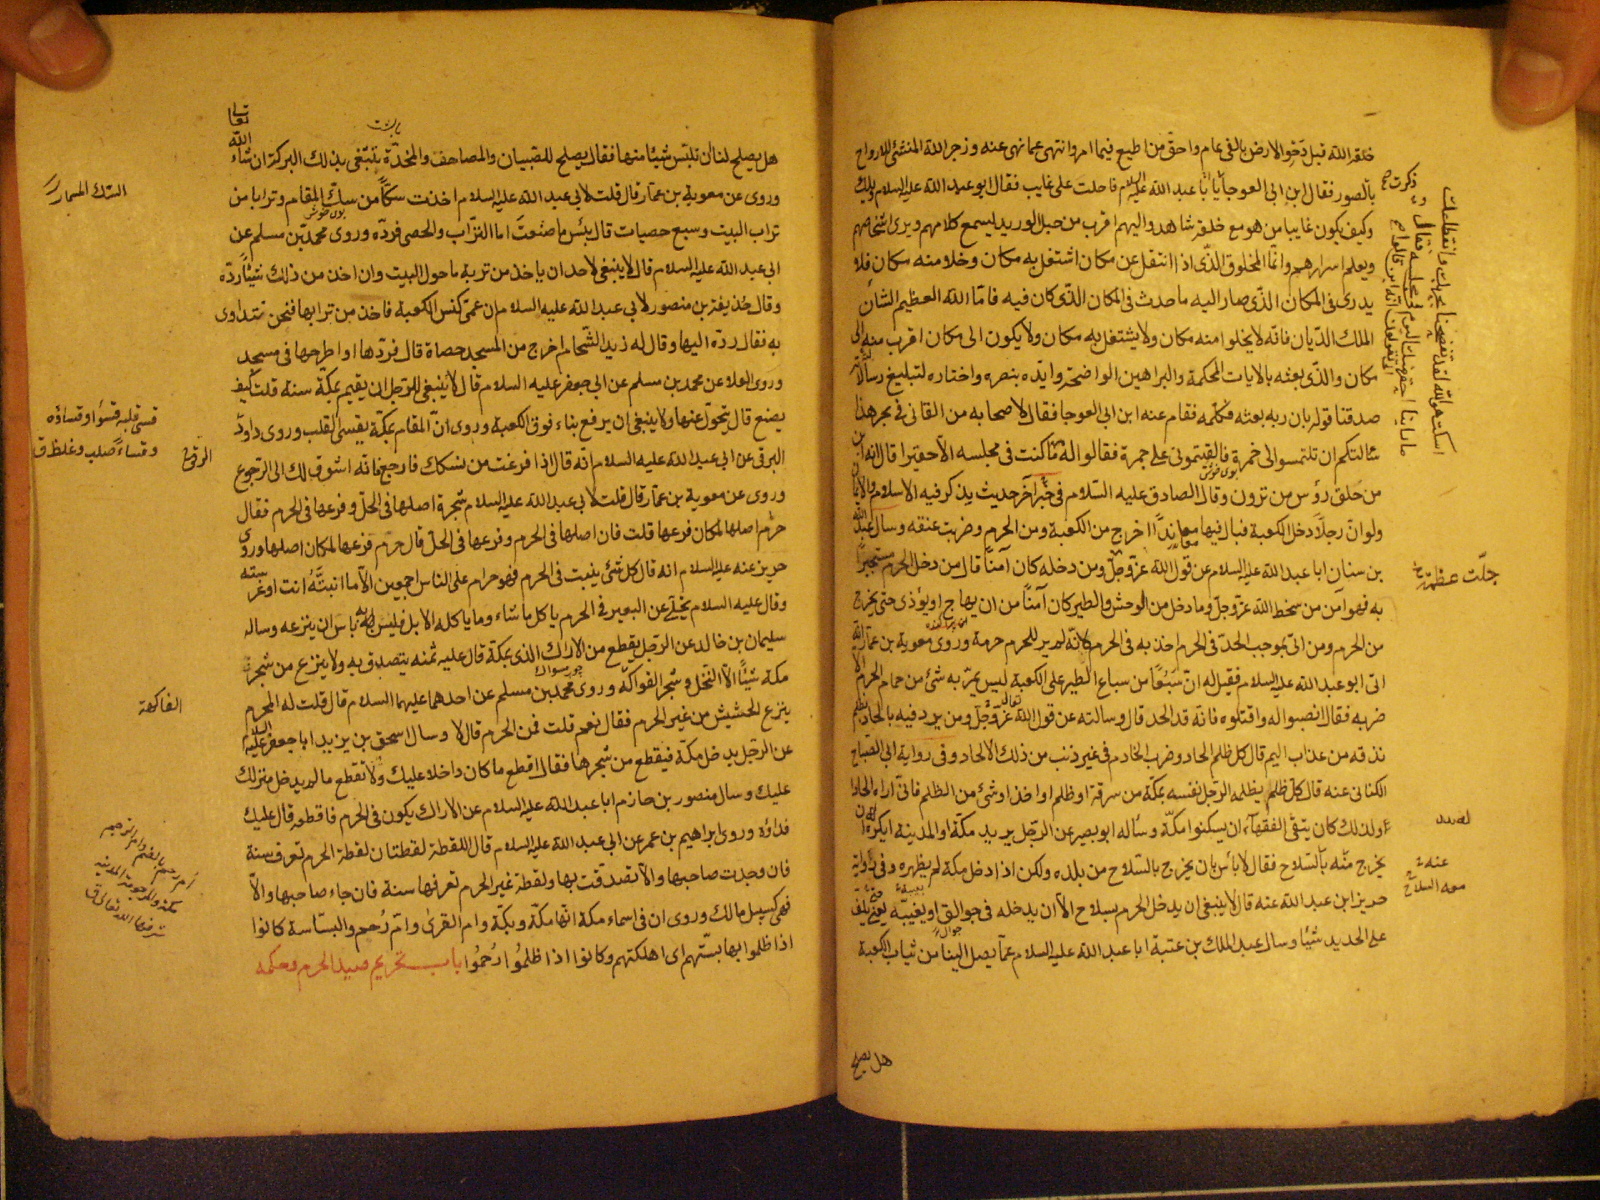 خلقه الله قبل دحو الارض بالفى عام واحق من اطيع فيما امر وانتهى عما نهى عنه وزجر الله المنشئ للارواح
بالصور فقال ابن ابى العوجا يا ابا عبد الله عليه السلام فاحلت على غايب فقال ابو عبد الله عليه السلام ويلك
وكيف يكون غايبا من هو مع خلقه شاهد واليهم اقرب من حبل الوريد يسمع كلامهم ويرى اشخاصهم
ويعلم اسرارهم وانما المخلوق الذى اذا انتقل عن مكان اشتغل به مكان وخلا منه مكان فلا
يدرى فى المكان الذى صار اليه ما حدث فى المكان الذى كان فيه فاما الله العظيم الشان
الملك الديان فانه لا يخلوا منه مكان ولا يشتغل به مكان ولا يكون الى مكان اقرب منه الى
مكان والذى بعثه بالايات المحكمة والبراهين الواضحة وايده بنصره واختاره لتبليغ رسالاته
صدقنا قوله بان ربه بعثه وكلمه فقام عنه ابن ابى العوجا فقال لاصحابه من القانى فى بحر هذا
سالتكم ان تلتمسوا لى خمرة فالقيتمونى على جمرة فقالوا له ما كنت فى مجلسه الا حقيرا قال انه ابن
من حلق رؤس من ترون وقال الصادق عليه السلام فى خبر آخر حديث يذكر فيه الاسلام والايمان
ولو ان رجلا دخل الكعبة فبال فيها معاندا اخرج من الكعبة ومن الحرم وضربت عنقه وسال عبد الله
بن سنان ابا عبد الله عليه السلام عن قول الله عز وجل ومن دخله كان آمنا قال من دخل الحرم مستجيرا
به فهو آمن من سخط الله عز وجل وما دخل من الوحش والطير كان آمنا من ان يهاج او يؤذى حتى يخرج
من الحرم ومن اتى بموجب الحد فى الحرم اخذ به فى الحرم لانه لم ير للحرم حرمة وروى معوية بن عمار انه
اتى ابو عبد الله عليه السلام فقيل له ان سبعا من سباع الطير على الكعبة ليس يمر به شئ من حمام الحرم الا
ضربه فقال انصبوا له واقتلوه فانه قد الحد قال وسالته عن قول الله عز وجل ومن يرد فيه بالحاد بظلم
نذقه من عذاب اليم قال كل ظلم الحاد وضرب الخادم فى غير ذنب من ذلك الالحاد وفى رواية ابى الصباح
الكنانى عنه قال كل ظلم يظلمه الرجل نفسه بمكة من سرقة او ظلم او اخذ او شئ من الظلم فانى اراه الحادا
ولذلك كان يتقى الفقهاء ان يسكنوا مكة وساله ابو بصير عن الرجل يريد مكة او المدينة ايكره ان
يخرج منه بالسلاح فقال لا باس بان يخرج بالسلاح من بلده ولكن اذا دخل مكة لم يظهره وفى رواية
حريز ابن عبد الله عنه قال لا ينبغى ان يدخل الحرم بسلاح الا ان يدخله فى جوالق او يغيبه يعنى يلف
على الحديد شيئا وسال عبد الملك بن عتبة ابا عبد الله عليه السلام عما يصل الينا من ثياب الكعبة
هل يصلح
جلت عظمته
عنه
معه السلاح
هل يصلح لنا ان نلبس شيئا منها فقال يصلح للصبيان والمصاحف والمخدة يبتغى بذلك البركة ان شاء الله تعالى
وروى عن معوية بن عمار قال قلت لابى عبد الله عليه السلام اخذت سكا من سك المقام وترابا من
تراب البيت وسبع حصيات قال بئس ما صنعت اما التراب والحصى فرده وروى محمد بن مسلم عن
ابى عبد الله عليه السلام قال لا ينبغى لاحد ان ياخذ من تربة ما حول البيت وان اخذ من ذلك شيئا رده
وقال حذيفة بن منصور لابى عبد الله عليه السلام ان عمى كنس الكعبة فاخذ من ترابها فنحن نتداوى
به فقال رده اليها وقال له زيد الشحام اخرج من المسجد حصاة قال فردها او اطرحها فى مسجد
وروى العلا عن محمد بن مسلم عن ابى جعفر عليه السلام قال لا ينبغى للرجل ان يقيم بمكة سنة قلت كيف
يصنع قال يتحول عنها ولا ينبغى ان يرفع بناء فوق الكعبة وروى ان المقام بمكة يقسى القلب وروى داود
البرقى عن ابى عبد الله عليه السلام انه قال اذا فرغت من نسكك فارجع فانه اشوق لك الى الرجوع
وروى عن معوية بن عمار قال قلت لابى عبد الله عليه السلام شجرة اصلها فى الحل وفرعها فى الحرم فقال
حرم اصلها لمكان فرعها قلت فان اصلها فى الحرم وفرعها فى الحل قال حرم فرعها لمكان اصلها وروى
حريز عنه عليه السلام انه قال كل شئ ينبت فى الحرم فهو حرام على الناس اجمعين الا ما انبته انت او غرسته
وقال عليه السلام يخلى عن البعير فى الحرم ياكل ما شاء وما ياكله الابل فليس به باس ان ينزعه وساله
سليمان بن خالد عن الرجل يقطع من الاراك الذى بمكة قال عليه ثمنه يتصدق به ولا ينزع من شجر
مكة شيئا الا النخل وشجر الفواكه وروى محمد بن مسلم عن احدهما عليهما السلام قال قلت له المحرم
ينزع الحشيش من غير الحرم فقال نعم قلت فمن الحرم قال لا وسال اسحق بن يزيد ابا جعفر عليه السلام
عن الرجل يدخل مكة فيقطع من شجرها فقال اقطع ما كان داخلا عليك ولا تقطع ما لم يدخل منزلك
عليك وسال منصور بن حازم ابا عبد الله عليه السلام عن الاراك يكون فى الحرم فاقطعه قال عليك
فداؤه وروى ابراهيم بن عمر عن ابى عبد الله عليه السلام قال اللقطة لقطتان لقطة الحرم تعرف سنة
فان وجدت صاحبها والا تصدقت بها ولقطة غير الحرم تعرفها سنة فان جاء صاحبها والا
فهى كسبيل مالك وروى ان فى اسماء مكة انها مكة وبكة وام القرى وام رحم والبساسة كانوا
اذا ظلموا بها بستهم اى اهلكتهم وكانوا اذا ظلموا رحموا باب تحريم صيد الحرم وحكمه
السك المسمار
قسى قلبه قسوا وقساوة
وقساء صلب وغلظ ق
الرقى
الفاكهة